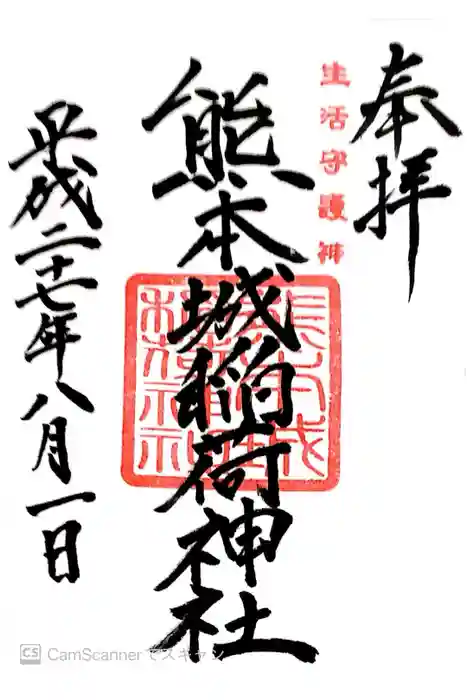 奉拝
生活守護神
熊本城稲荷神社
平成二十七年八月一日
CS CamScannerでスキャン